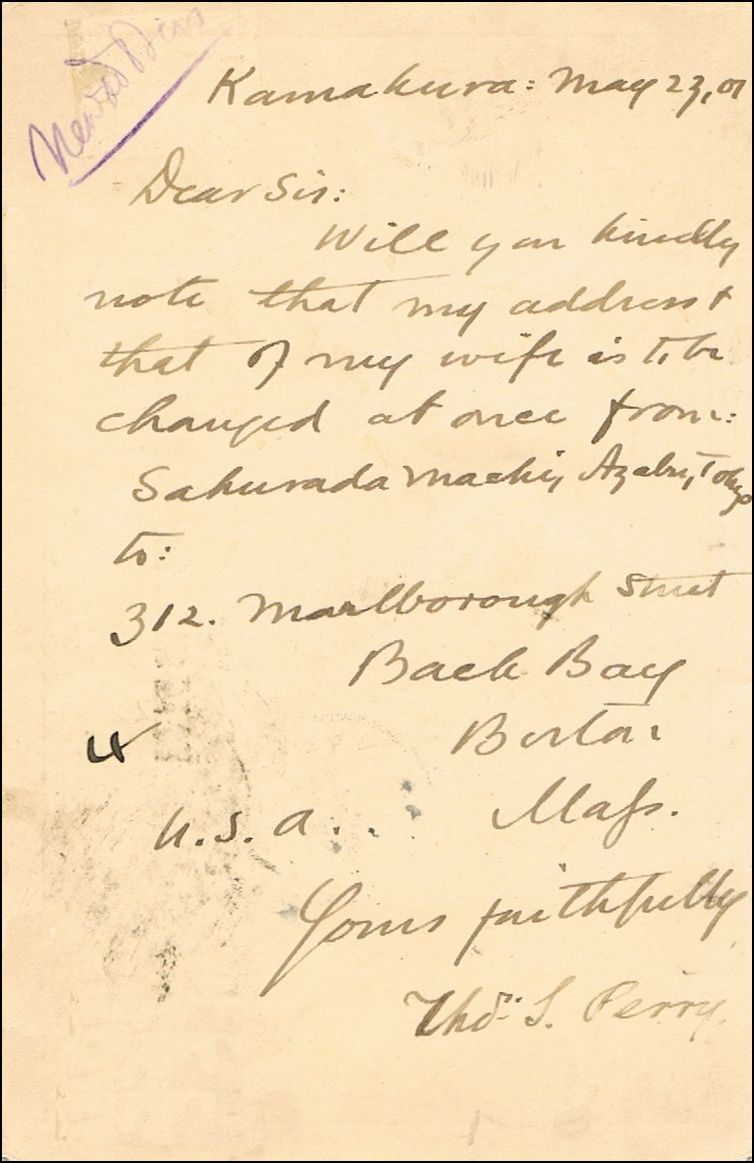 Kamakura: May 23, 01
Dear Sir:
Will you kindly
note that my address &
that of my wife is to be
changed at once from:
Sakurada Machi, Azabu, Tokyo
to:
312. Marlborough Street
Back Bay
Boston
4
U.S.A. Mass.
Yours faithfully
Thos. S. Perry.